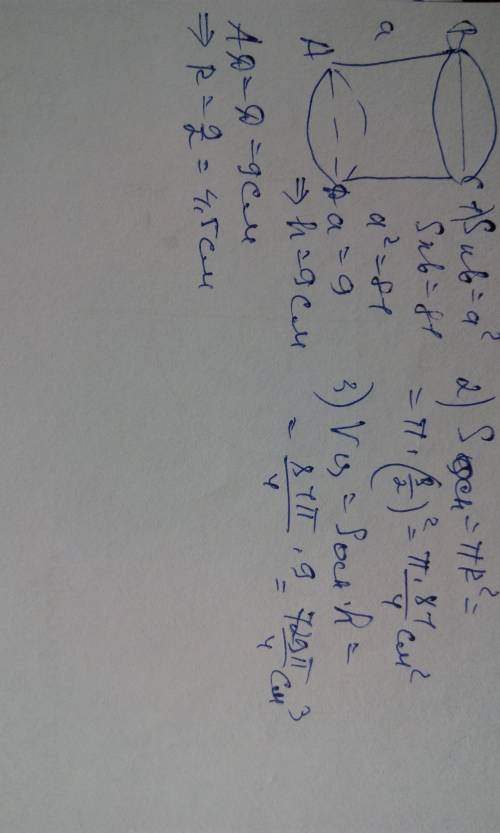 B
a
C
A
D
1) Sкв = a²
Sкв = 81
a² = 81
a = 9
⇒ h = 9 см
AD = D = 9 см
⇒ R = 9/2 = 4,5 см
2) Sосн = πR² =
= π · (9/2)² = π · 81/4 см²
3) Vц = Sосн · h =
= 81π/4 · 9 = 729π/4 см³